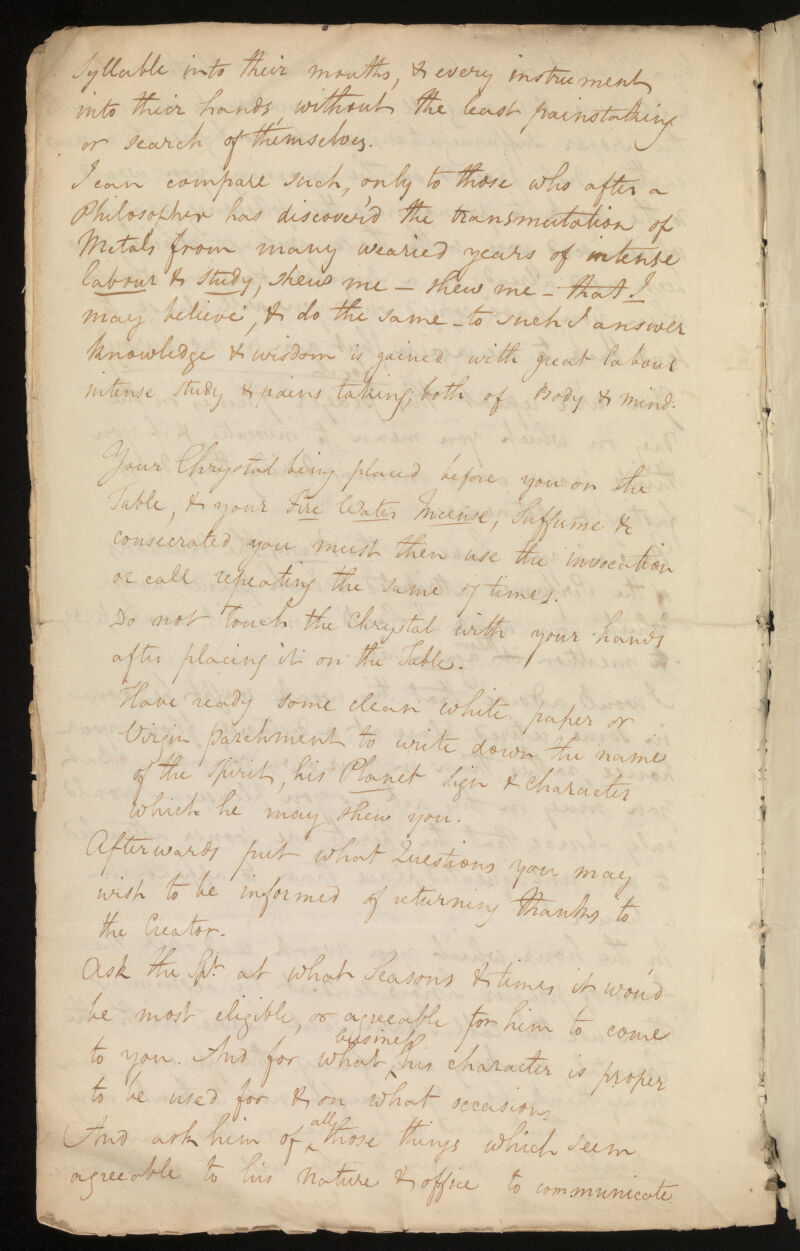 syllable into their mouths, & every instrument
into their hands, without the least painstaking
or search of themselves.
I can compare such, only to those who after a
Philosopher has discover'd the transmutation of
Metals from many wearied years of intense
labour & study, shews me – shew me – that I
may believe, & do the same – to such I answer
knowledge & wisdom is gained with great labour
intense study & pains taking; both of Body & mind.
Your Chrystal being placed before you on the
Table, & your Fire Water Incense, Suffume &
consecrated you must then use the invocation
or call repeating the same 7 times.
Do not touch the Chrystal with your hands
after placing it on the Table.
Have ready some clean white paper or
Virgin parchment to write down the name
of the Spirit, his Planet sign & character
which he may shew you.
Afterwards put what Questions you may
wish to be informed of returning thanks to
the Creator.
Ask the Spt. at what Seasons & times it wou'd
be most eligible, or agreeable for him to come
to you. And for what business his character is proper
to be used for & on what occasions
And ask him of all those things which seem
agreeable to his nature & office to communicate